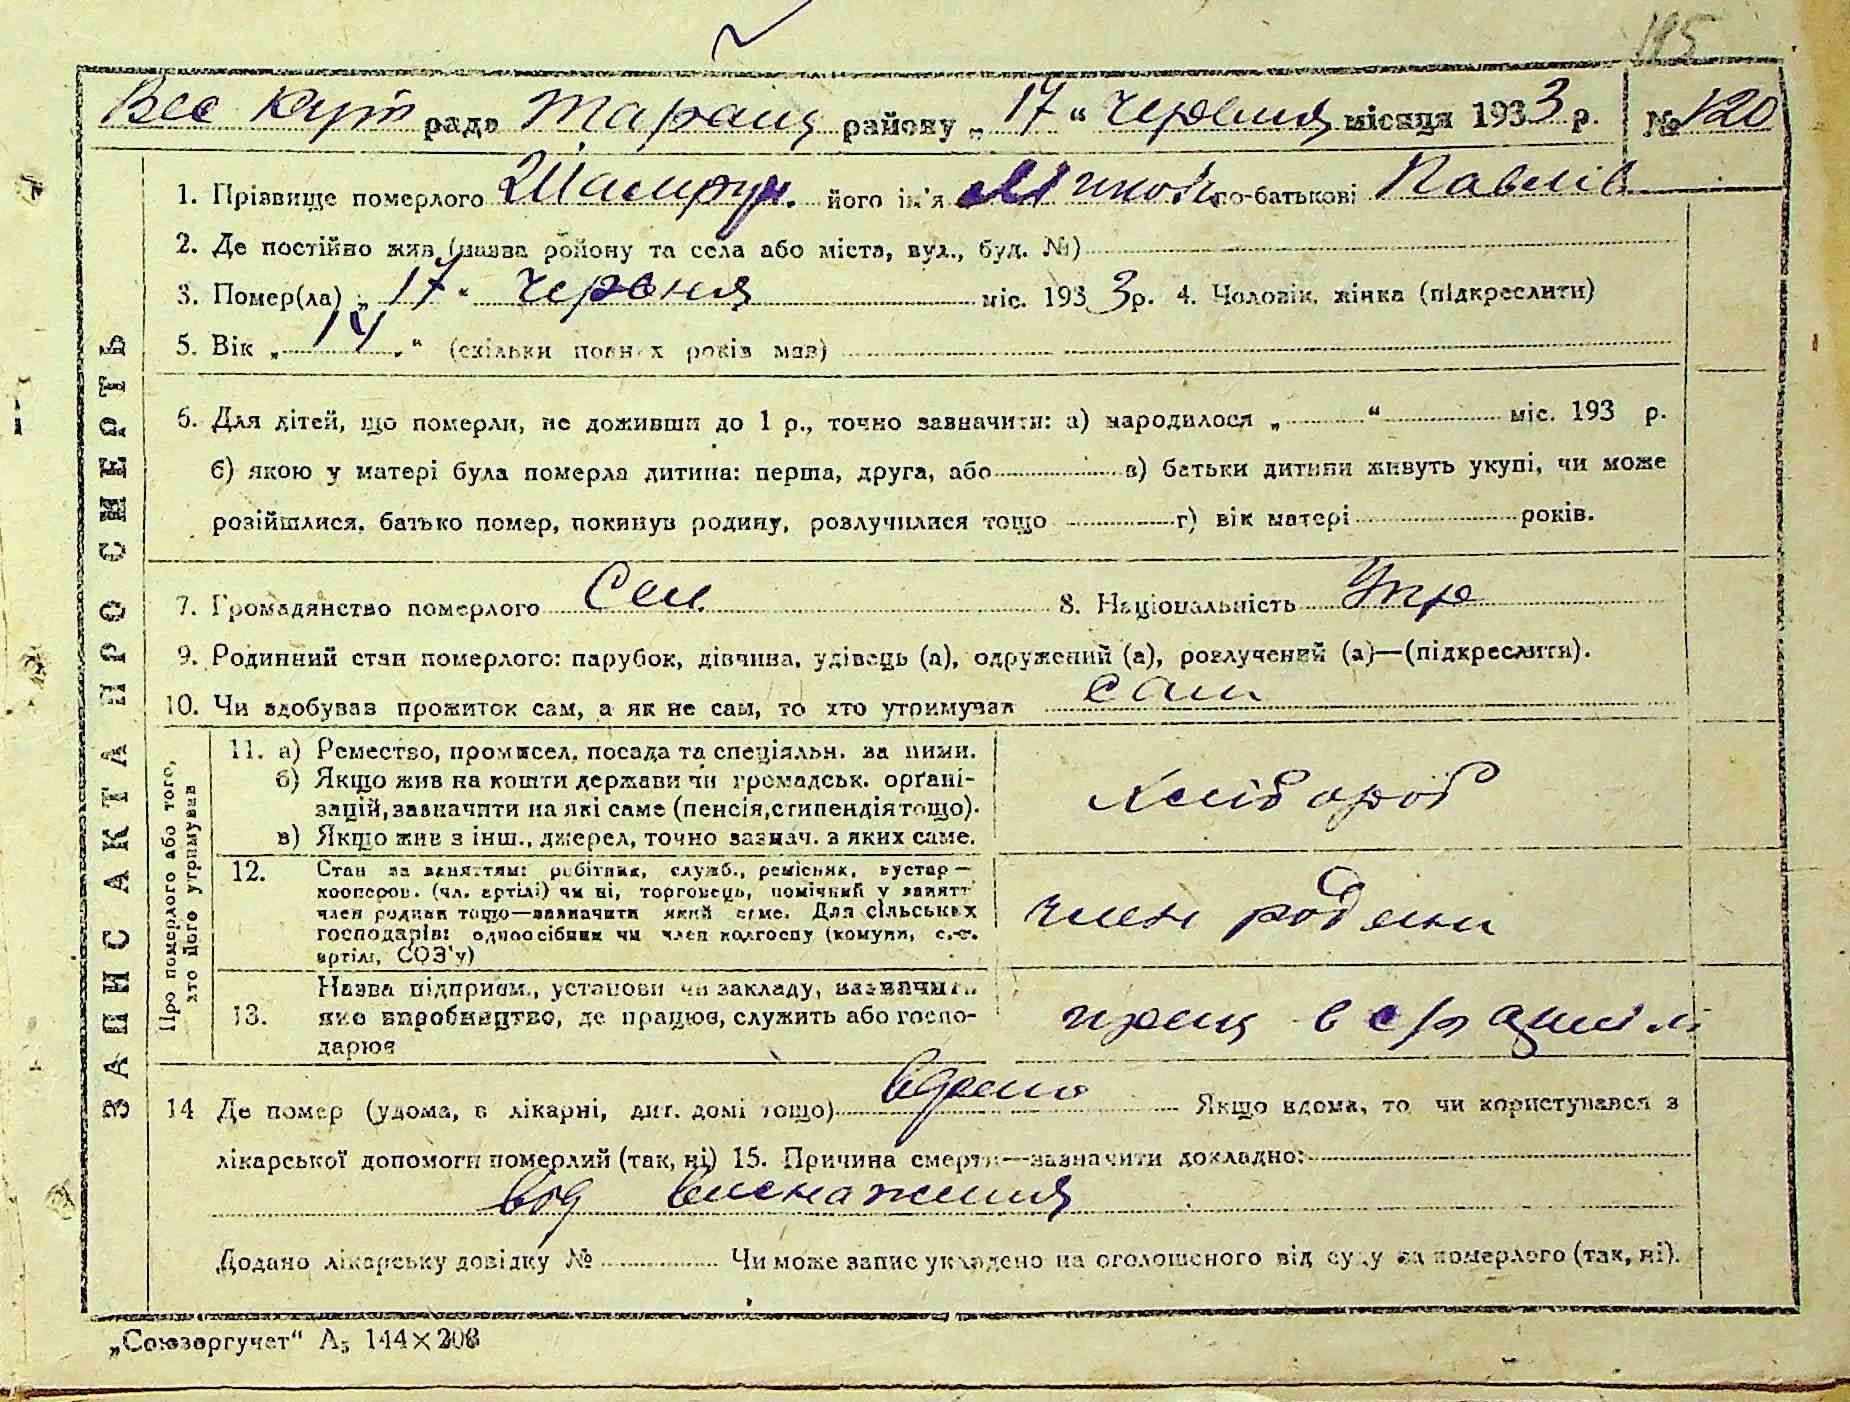 195
Вес Кут рада Таращ району „ 17 “ Червня місяця 1933 р. № 120
ЗАПИС АКТА ПРО СМЕРТЬ
1. Прізвище померлого Шамрун. його ім'я по-батькові Павлів
2. Де постійно жив (назва району та села або міста, вул., буд. №)
3. Помер(ла) „ 17 “ червня міс. 1933 р. 4. Чоловік, жінка (підкреслити)
5. Вік „ 14 “ (скільки повних років мав)
6. Для дітей, що померли, не доживши до 1 р., точно зазначити: а) народилося „ “ міс. 193 р.
б) якою у матері була померла дитина: перша, друга, або в) батьки дитини живуть укупі, чи може
розійшлися, батько помер, покинув родину, розлучилися тощо г) вік матері років.
7. Громадянство померлого Сел 8. Національність Укр
9. Родинний стан померлого: парубок, дівчина, удівець (а), одружений (а), розлучений (а)—(підкреслити).
10. Чи здобував прожиток сам, а як не сам, то хто утримував сам
Про померлого або того,
хто його утримував
11. а) Ремество, промисел, посада та спеціяльн. за ними.
б) Якщо жив на кошти держави чи громадськ. органі-
зацій, зазначити на які саме (пенсія, стипендія тощо).
в) Якщо жив з інш., джерел, точно зазнач. з яких саме.
Хлібороб
12. Стан за заняттям: робітник, служб., ремісник, кустар—
кооперов. (чл. артілі) чи ні, торговець, помічний у занятт
член родини тощо—зазначити який саме. Для сільських
господарів: одноосібник чи член колгоспу (комуни, с.-г.
артілі, СОЗ'у)
член родини
13. Назва підприєм., установи чи закладу, зазначити
яке виробництво, де працює, служить або госпо-
дарює
прац в с/г артілі
14 Де помер (удома, в лікарні, дит. домі тощо) вдома Якщо вдома, то чи користувався з
лікарської допомоги померлий (так, ні) 15. Причина смерти—зазначити докладно:
від виснаження
Додано лікарську довідку № Чи може запис укладено на оголошеного від суду за померлого (так, ні).
„Союзоргучет“ А5 144×208